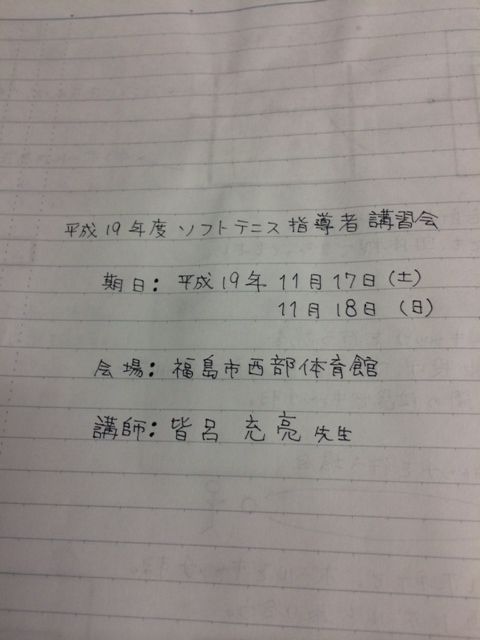 平成19年度 ソフトテニス 指導者 講習会
期日: 平成19年 11月17日(土)
11月18日 (日)
会場: 福島市西部体育館
講師: 皆呂 充亮 先生